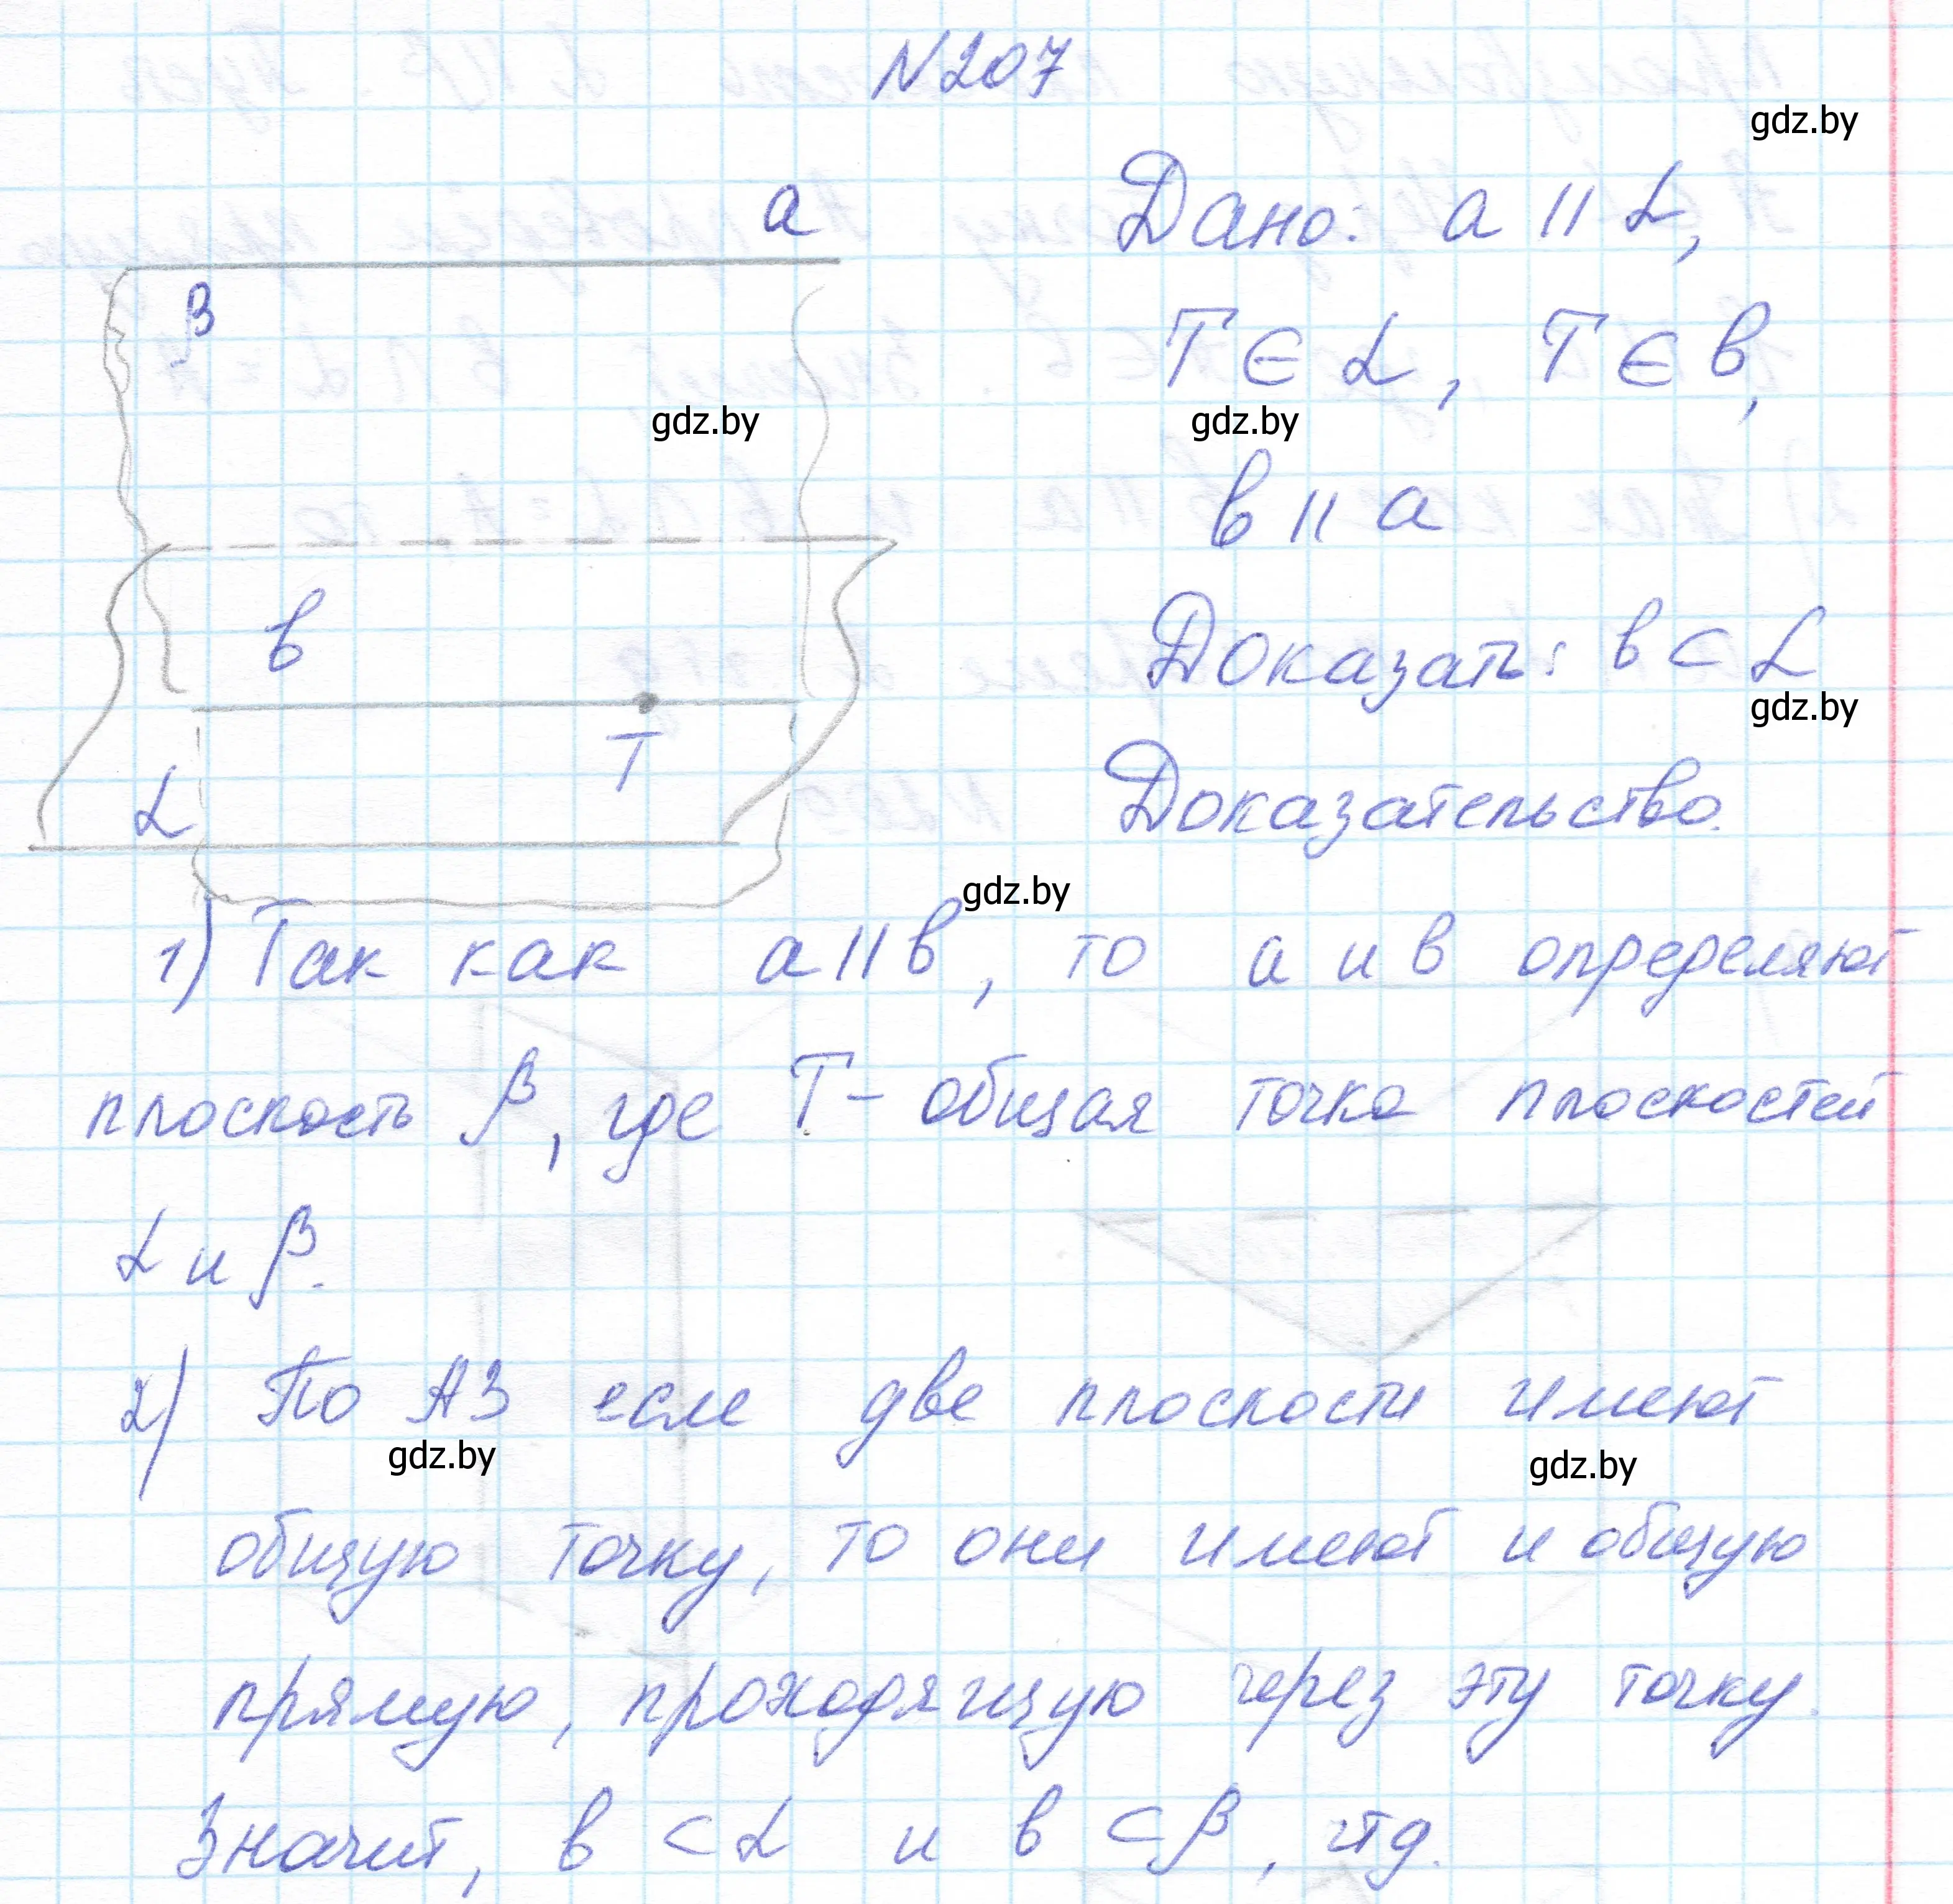 N207
gdz.by
a
Дано: a || α,
β
T ∈ α, T ∈ b,
gdz.by
gdz.by
b || a
b
Доказать: b ⊂ α
gdz.by
T
α
Доказательство.
gdz.by
1) Так как a || b, то a и b определяют
плоскость β, где T – общая точка плоскостей
α и β.
2) По А3 если две плоскости имеют
gdz.by
gdz.by
общую точку, то они имеют и общую
прямую, проходящую через эту точку.
Значит, b ⊂ α и b ⊂ β, чтд.